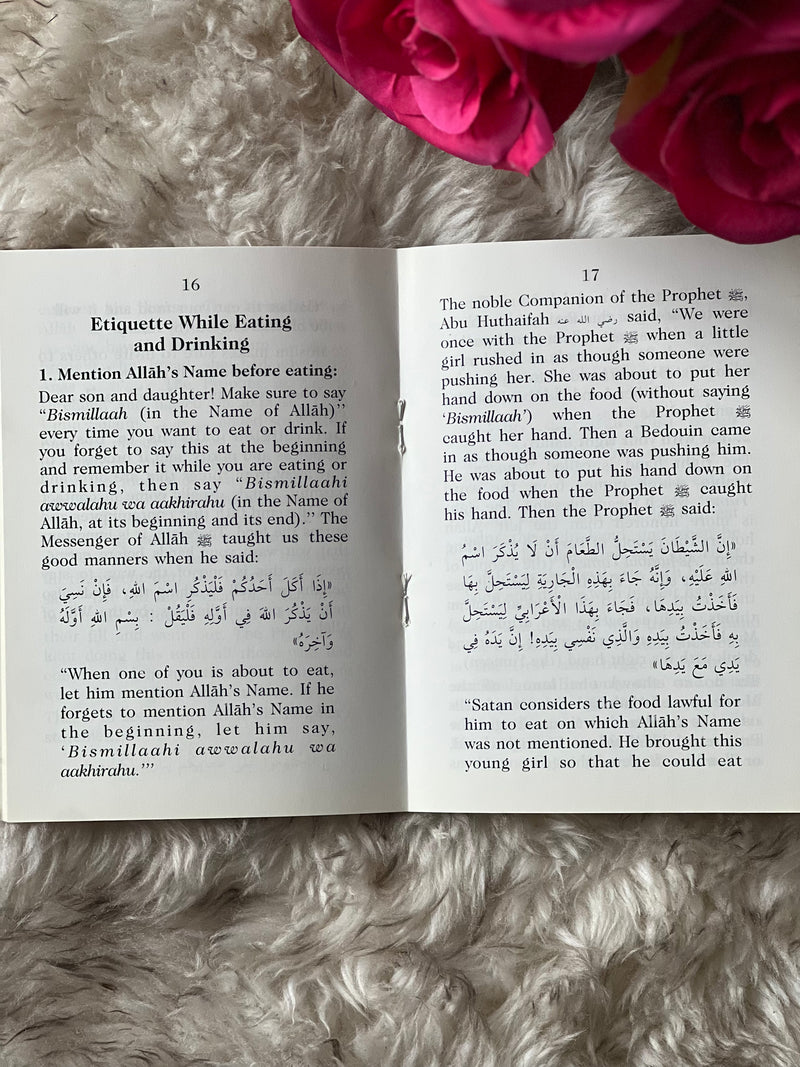 16
Etiquette While Eating
and Drinking
1. Mention Allāh's Name before eating:
Dear son and daughter! Make sure to say
“Bismillaah (in the Name of Allāh)”
every time you want to eat or drink. If
you forget to say this at the beginning
and remember it while you are eating or
drinking, then say “Bismillaahi
awwalahu wa aakhirahu (in the Name of
Allāh, at its beginning and its end).” The
Messenger of Allāh ﷺ taught us these
good manners when he said:
«إِذَا أَكَلَ أَحَدُكُمْ فَلْيَذْكُرِ اسْمَ اللهِ، فَإِنْ نَسِيَ
أَنْ يَذْكُرَ اللهَ فِي أَوَّلِهِ فَلْيَقُلْ : بِسْمِ اللهِ أَوَّلَهُ
وَآخِرَهُ»
“When one of you is about to eat,
let him mention Allāh's Name. If he
forgets to mention Allāh's Name in
the beginning, let him say,
‘Bismillaahi awwalahu wa
aakhirahu.’”
17
The noble Companion of the Prophet ﷺ,
Abu Huthaifah رضي الله عنه said, “We were
once with the Prophet ﷺ when a little
girl rushed in as though someone were
pushing her. She was about to put her
hand down on the food (without saying
‘Bismillaah’) when the Prophet ﷺ
caught her hand. Then a Bedouin came
in as though someone was pushing him.
He was about to put his hand down on
the food when the Prophet ﷺ caught
his hand. Then the Prophet ﷺ said:
«إِنَّ الشَّيْطَانَ يَسْتَحِلُّ الطَّعَامَ أَنْ لَا يُذْكَرَ اسْمُ
اللهِ عَلَيْهِ، وَإِنَّهُ جَاءَ بِهَذِهِ الْجَارِيَةِ لِيَسْتَحِلَّ بِهَا
فَأَخَذْتُ بِيَدِهَا، فَجَاءَ بِهَذَا الْأَعْرَابِيِّ لِيَسْتَحِلَّ
بِهِ فَأَخَذْتُ بِيَدِهِ وَالَّذِي نَفْسِي بِيَدِهِ! إِنَّ يَدَهُ فِي
يَدِي مَعَ يَدِهَا»
“Satan considers the food lawful for
him to eat on which Allāh's Name
was not mentioned. He brought this
young girl so that he could eat